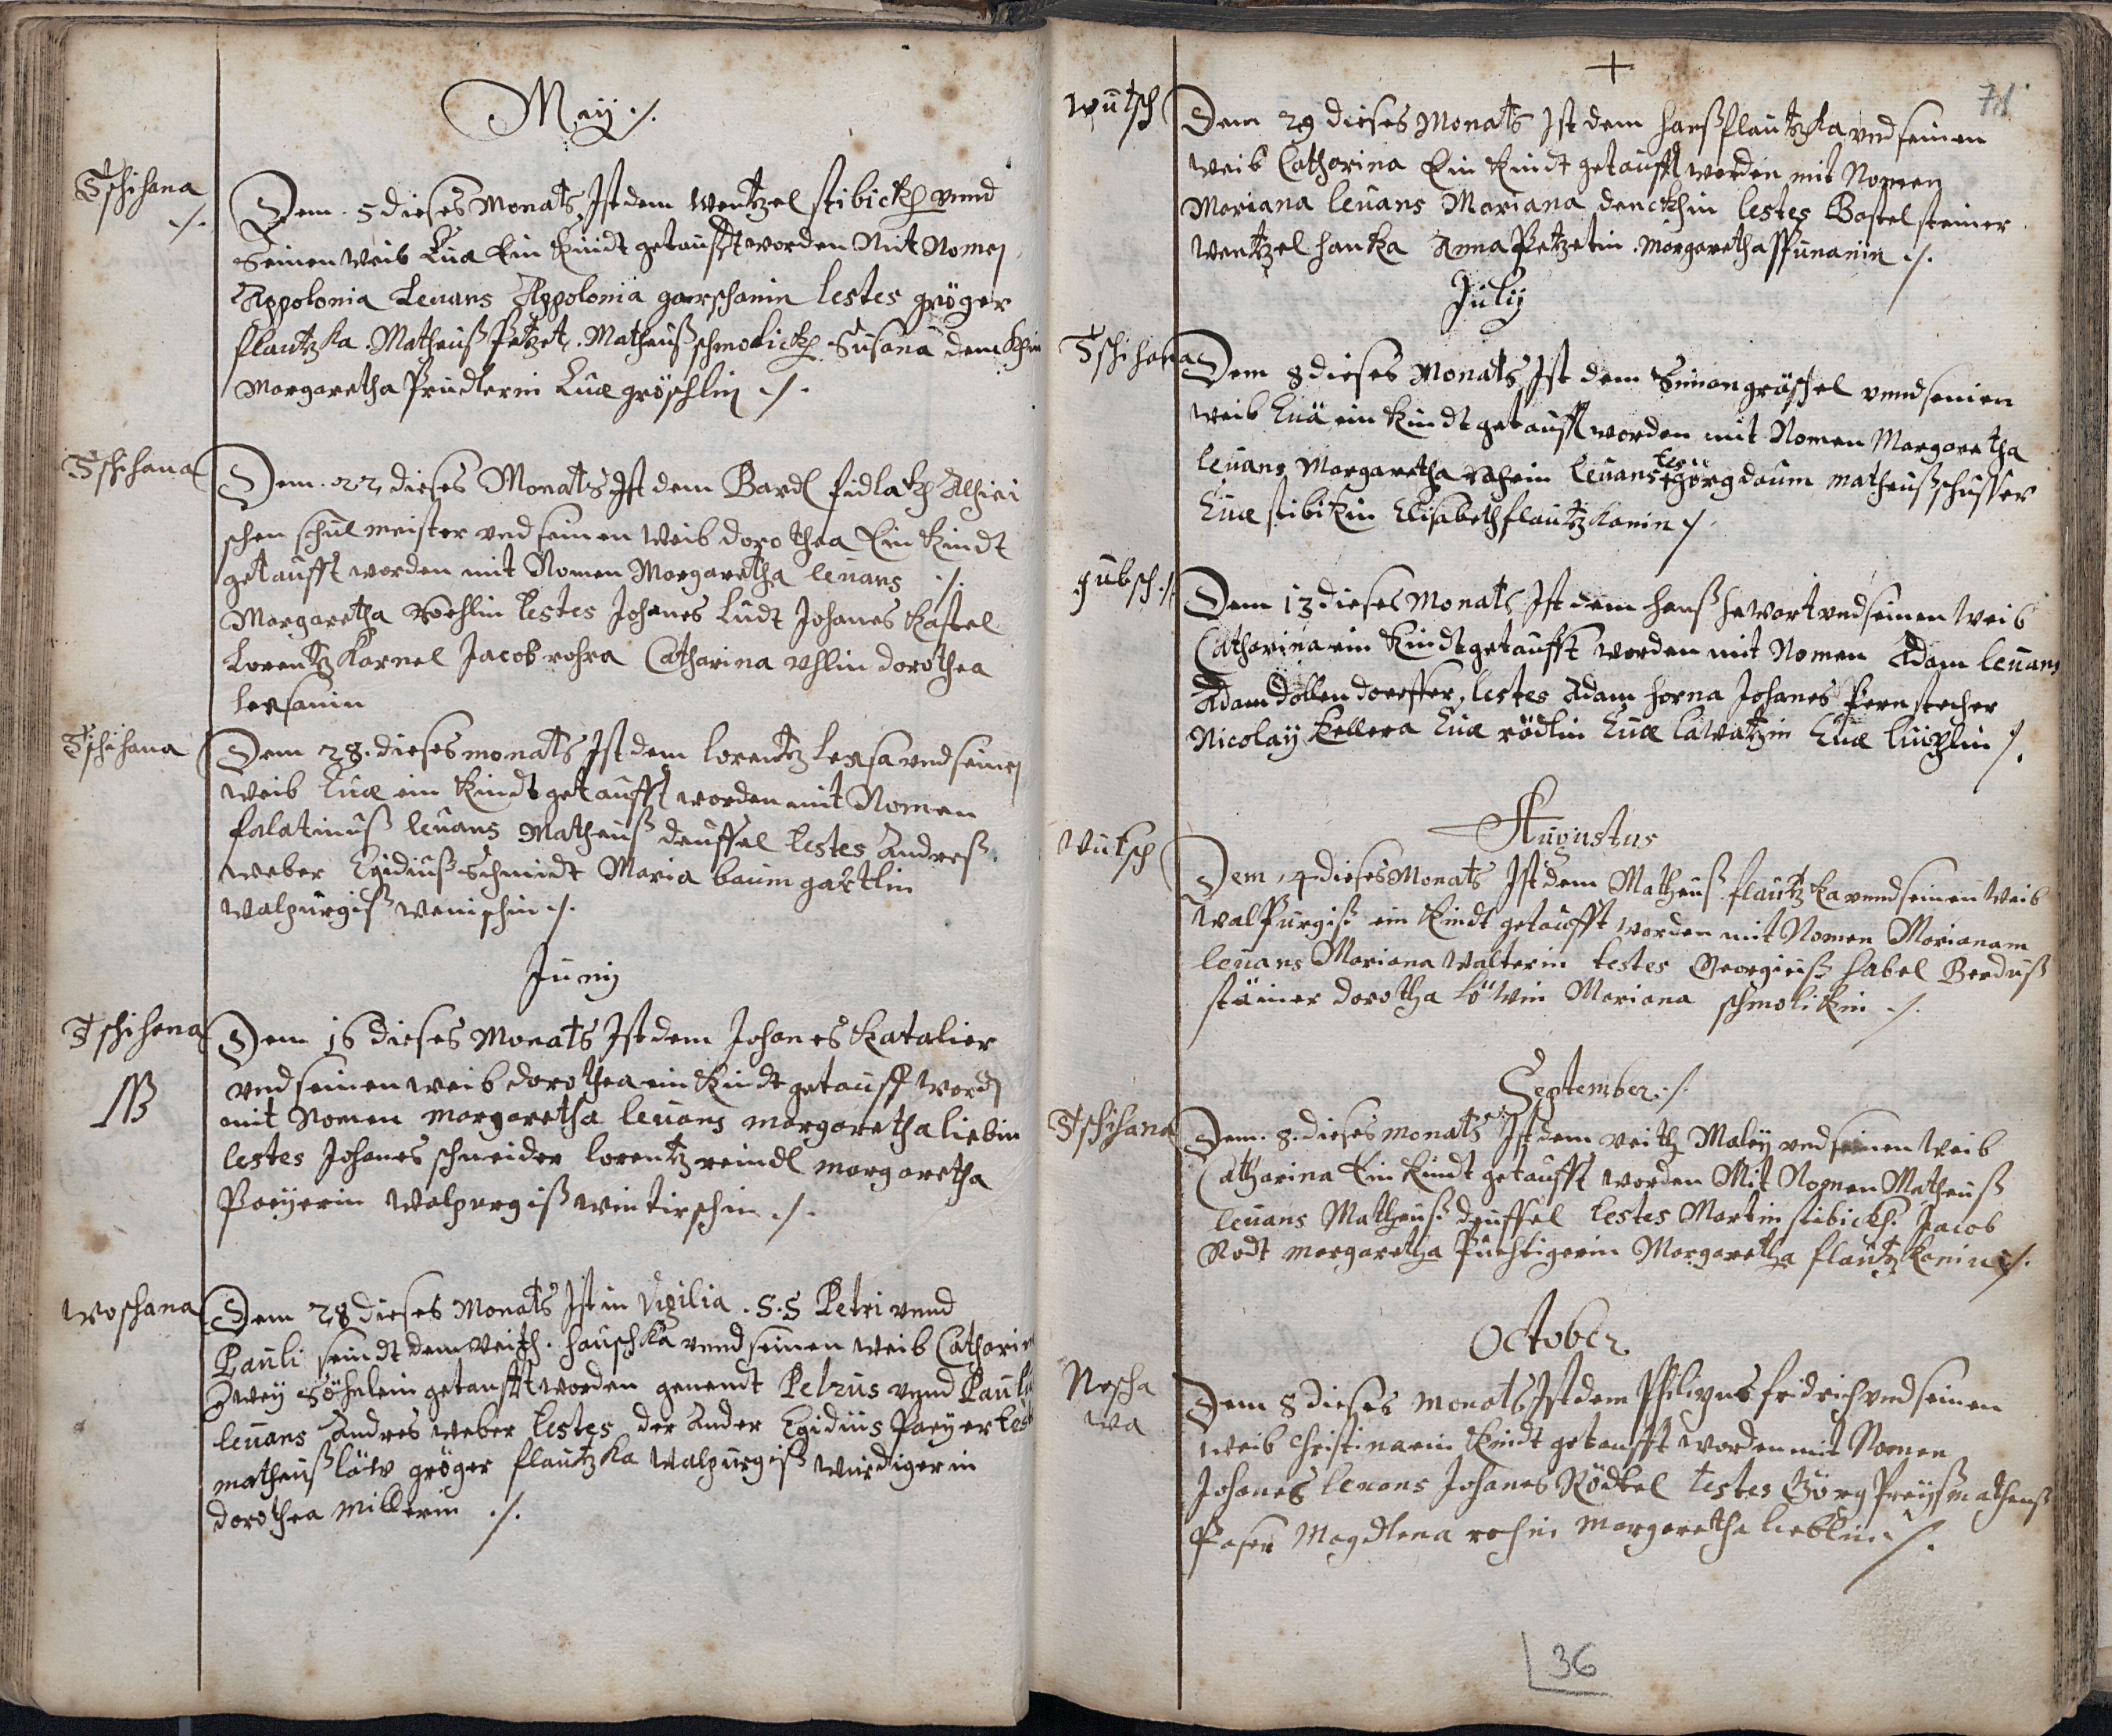 Maij ./.
Tschihana ./.
Dem . 5 dieses Monats Ist dem Wentzel stibickh vnnd
Seinen Weib Eua Ein Kindt getaufft worden Mit Nomen
Appolonia Leuans Appolonia garschanin testes gröger
flautzka . Matheuß Petzet . Matheuß schmolickh Susana denckhin
Margaretha Prudlerin Eua gröschlin ./.
Tschihana
Dem . 22 dieses Monats Ist dem Bardl fidlackh Alhiei
schen schulmeister vnd seinen Weib dorothea Ein Kindt
getaufft worden mit Nomen Margaretha leuans ./.
Margaretha testes Johanes Ludt Johanes Kastel
Lorentz Karnel Jacob rohra Catharina Vhlin dorothea
Lexsanin
Tschihana
Dem 28 . dieses monats Ist dem lorentz Lexsa vnd seinen
Weib Eua ein Kindt getaufft worden mit Nomen
falatinuß leuans Matheuß deuffel testes Andreß
Weber Egidiuß Schmidt Maria baumgartlin
Walpurgiß Wenischin ./.
Junij
Tschihana
Dem 16 dieses Monats Ist dem Johanes Katalier
vnd seinen weib dorothea ein Kindt getauff word
mit Nomen margaretha leuans margaretha liebin
testes Johanes schneider lorentz reindl margaretha
Paeyerin Walpurgiß wintirschin ./.
Woschana
Dem 28 dieses Monats Ist in Vigilia . S . S Petri vnnd
Pauli seindt dem Veith . hauschka vnnd seinen weib Catharin
Zweÿ Söhnlein getaufft worden genendt Petrus vnnd Pauli
leuans Andres weber testes der Ander Egidius Paeyer test
matheuß läw gröger flautzka Walpurgiß Würdigerin
dorothea Millerin ./.
71
Wutsch
Dem 29 dieses Monats Ist dem hanß flautzka vnd seinen
weib Catharina Ein Kindt getaufft worden mit Nomen
Mariana leuans Mariana denckhin testes Bastel steiner
Wentzel hanka Anna Petzetin . Margaretha ./.
Julij
Tschihana
Dem 8 dieses Monats Ist dem Simon gröschel vnnd seinen
weib Euä ein Kindt getauff worden mit Nomen Margaretha
leuans Margaretha leuans tes: görg daum matheuß schusser
Eua stibikin Elisabeth flautzkanin ./.
gubsch ./.
Dem 13 dieses Monats Ist dem hanß hewart vnd seinen Weib
Catharina ein Kindt getaufft worden mit Nomen Adam leuans
Adam dollendoerffer, testes Adam horna Johanes Pernstecher
Nicolaÿ Kellera Eua rödlin Eua lawatzin Eua ./.
Augustus
Wutsch
Dem 4 dieses Monats Ist dem Matheuß flautzka vnnd seinen Weib
Walpurgiß ein Kindt getaufft worden mit Nomen Marianam
leuans Mariana Walterin testes Georgiuß habel Berduß
stainer dorotha löwin Mariana schmolikin ./.
September ./.
Tschihana
Dem . 8 . dieses monats Ist dem Veith Maleÿ vnd seinen Weib
Catharina Ein Kindt getaufft worden Mit Nomen Matheuß
leuans Matheuß deuffel testes Martin stibickh . Jacob
Rodt margaretha Püchtigerin Margaretha flautzkanin ./.
October
Noscha
wa
Dem 8 dieses Monats Ist dem Philipus fridrich vnd seinen
weib Christina ein Kindt getaufft worden mit Nomen
Johanes leuans Johanes Rödtel testes Görg Preyß matheuß
Paser Magdlena Margaretha lieblin ./.
36